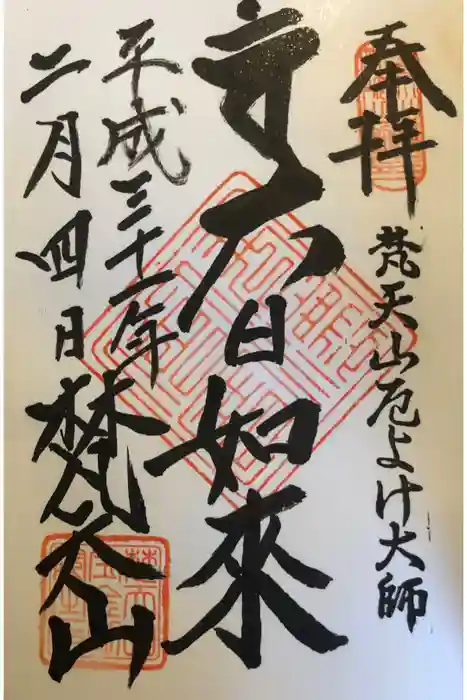 奉拝
梵天山厄よけ大師
大日如来
平成三十一年
二月四日
梵天山